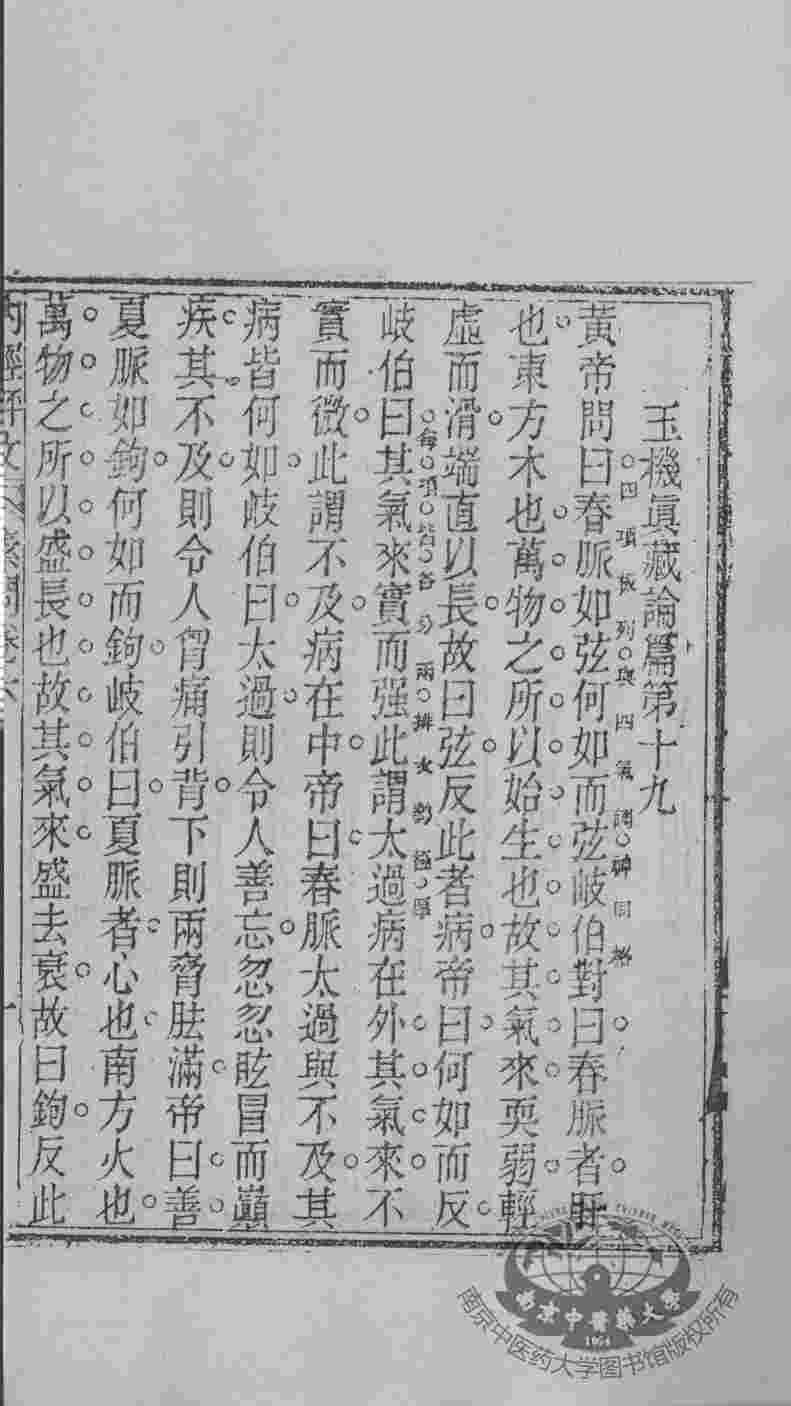 玉機眞藏論篇第十九
黃帝問曰春脈如弦何如而弦岐伯對曰春脈者肝
四項依列與四氣調神同格
也東方木也萬物之所以始生也故其氣來耎弱輕
虛而滑端直以長故曰弦反此者病帝曰何如而反
每項皆各分兩排文勢極厚
岐伯曰其氣來實而强此謂太過病在外其氣來不
實而微此謂不及病在中帝曰春脈太過與不及其
病皆何如岐伯曰太過則令人善忘忽忽眩冒而巔
疾其不及則令人胷痛引背下則兩脅胠滿帝曰善
夏脈如鉤何如而鉤岐伯曰夏脈者心也南方火也
萬物之所以盛長也故其氣來盛去衰故曰鉤反此
內經評文 素問卷六
一
南京中醫藥大學
1954
南京中医药大学图书馆版权所有